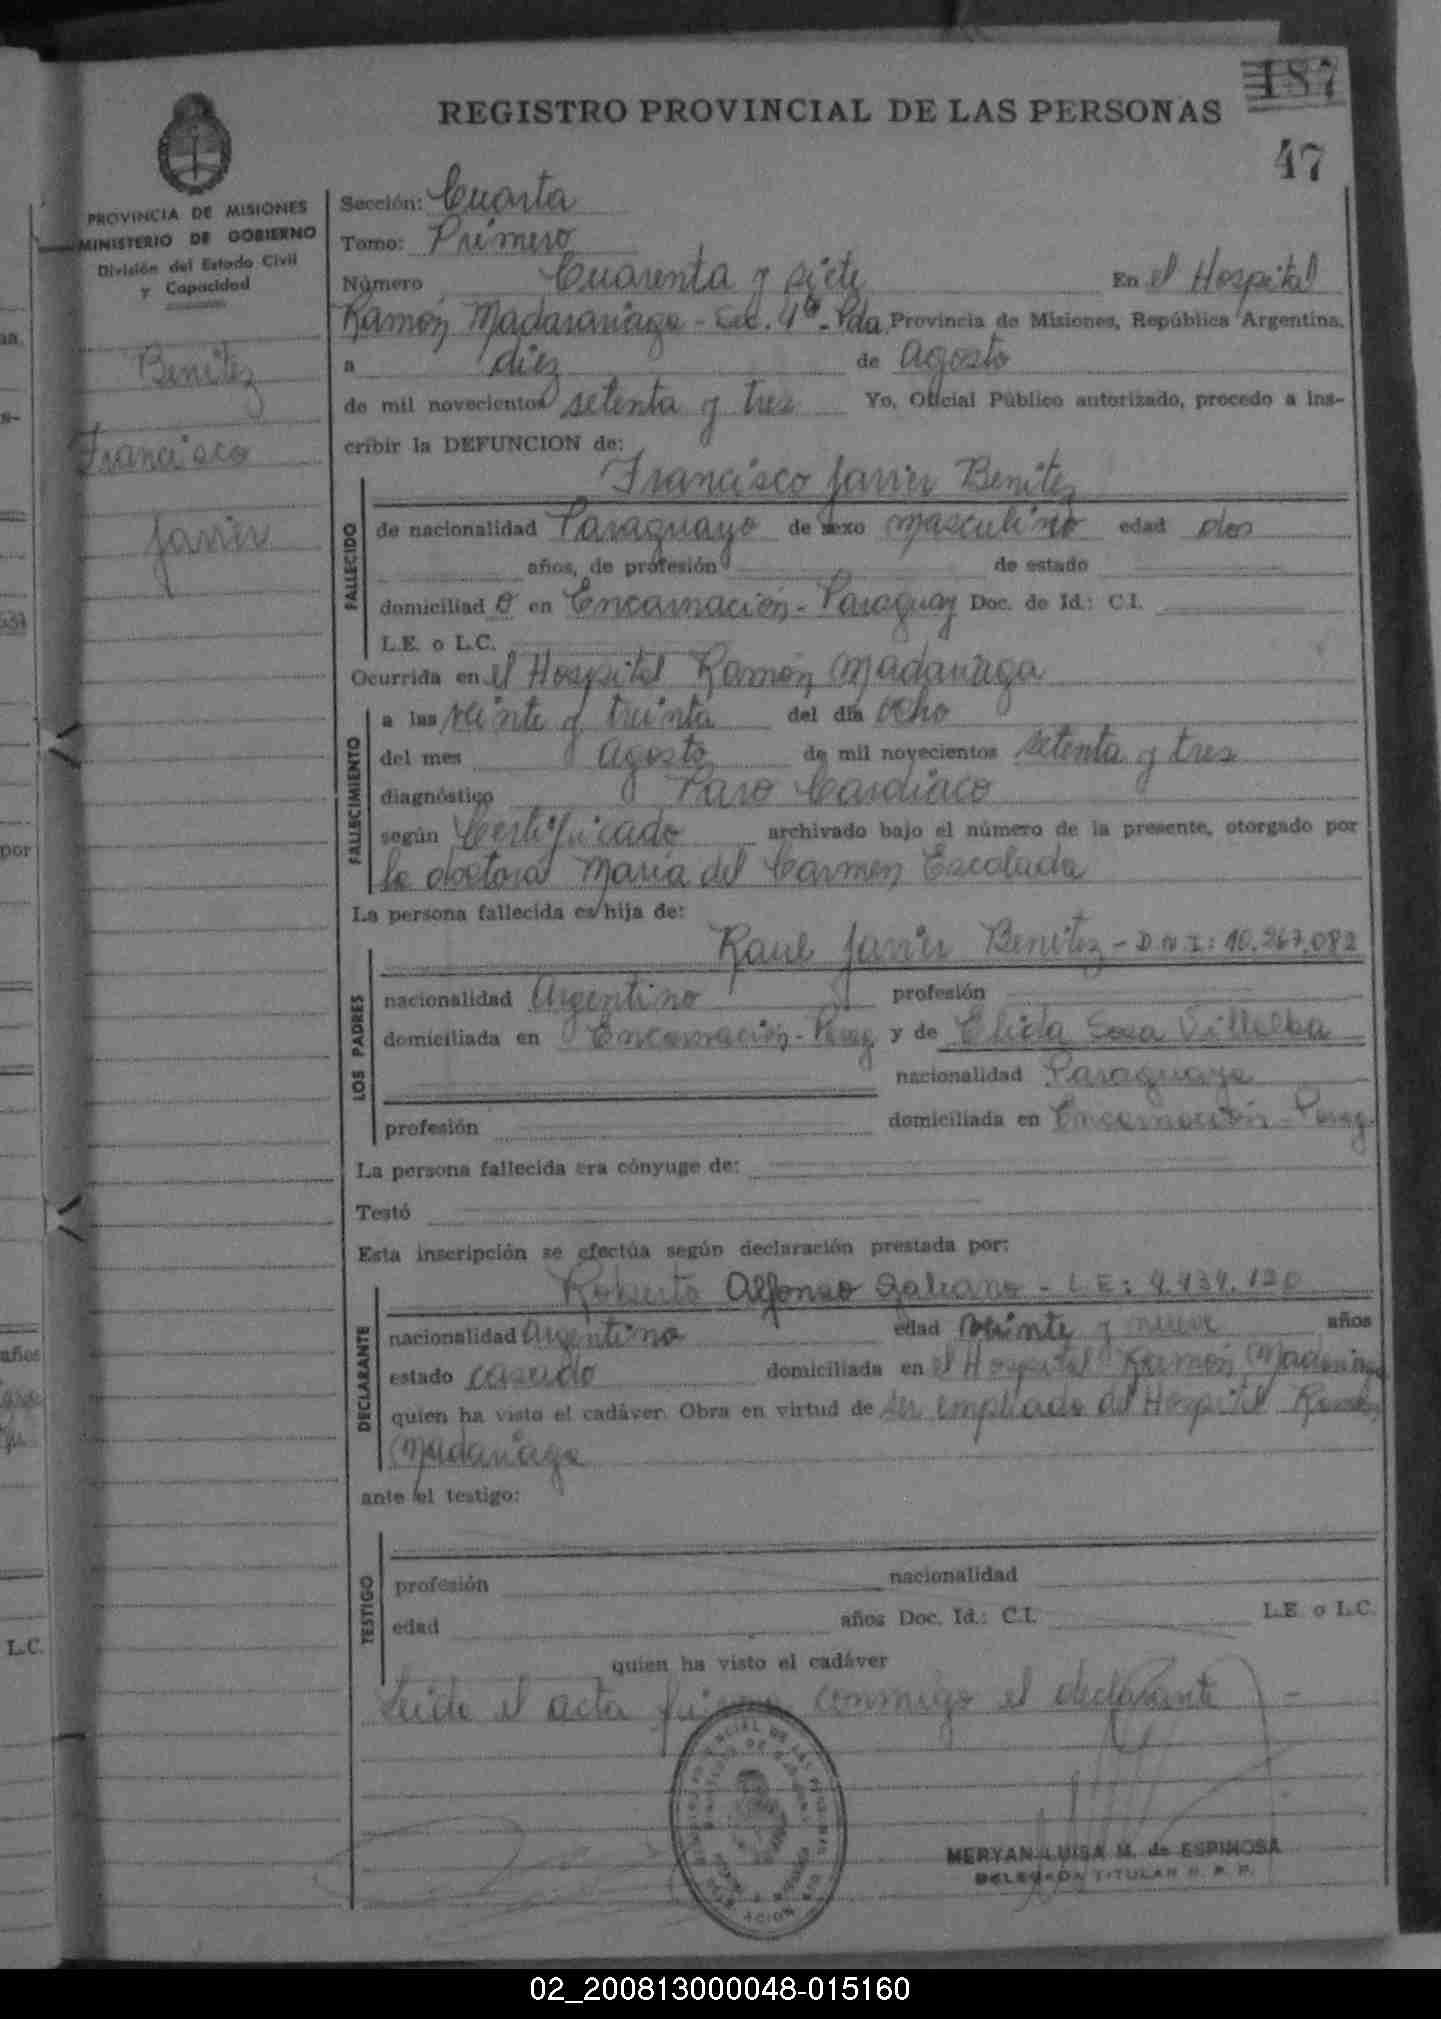 187
REGISTRO PROVINCIAL DE LAS PERSONAS
47
PROVINCIA DE MISIONES
MINISTERIO DE GOBIERNO
División del Estado Civil
y Capacidad
Benitez
Francisco
Javier
Sección: Cuarta
Tomo: Primero
Número Cuarenta y siete En el Hospital
Ramón Madariaga - Sec. 4ª - Pda. Provincia de Misiones, República Argentina,
a diez de agosto
de mil novecientos setenta y tres Yo, Oficial Público autorizado, procedo a ins-
cribir la DEFUNCION de:
Francisco Javier Benitez
FALLECIDO
de nacionalidad Paraguayo de sexo masculino edad dos
años, de profesión de estado
domiciliad o en Encarnación - Paraguay Doc. de Id.: C.I.
L.E. o L.C.
Ocurrida en el Hospital Ramón Madariaga
FALLECIMIENTO
a las veinte y treinta del día ocho
del mes agosto de mil novecientos setenta y tres
diagnóstico Paro Cardiaco
según Certificado archivado bajo el número de la presente, otorgado por
la doctora María del Carmen Escalada
La persona fallecida es hija de:
Raul Javier Benitez - D.N.I: 10.267.082
LOS PADRES
nacionalidad Argentino profesión
domiciliada en Encarnación - Parag y de Elida Sosa Villalba
nacionalidad Paraguaya
profesión domiciliada en Encarnación - Parag.
La persona fallecida era cónyuge de:
Testó
Esta inscripción se efectúa según declaración prestada por:
Roberto Alfonso Galeano - L.E: 4.434.120
DECLARANTE
nacionalidad Argentino edad veinte y nueve años
estado casado domiciliada en el Hospital Ramón Madariaga
quien ha visto el cadáver. Obra en virtud de ser empleado del Hospital Ramón
Madariaga
ante el testigo:
TESTIGO
profesión nacionalidad
edad años Doc. Id.: C.I. L.E. o L.C.
quien ha visto el cadáver
Leida el acta firma conmigo el declarante -
MERYAN LUISA M. de ESPINOSA
DELEGADA TITULAR R. P. P.
por
años
L.C.
02_200813000048-015160